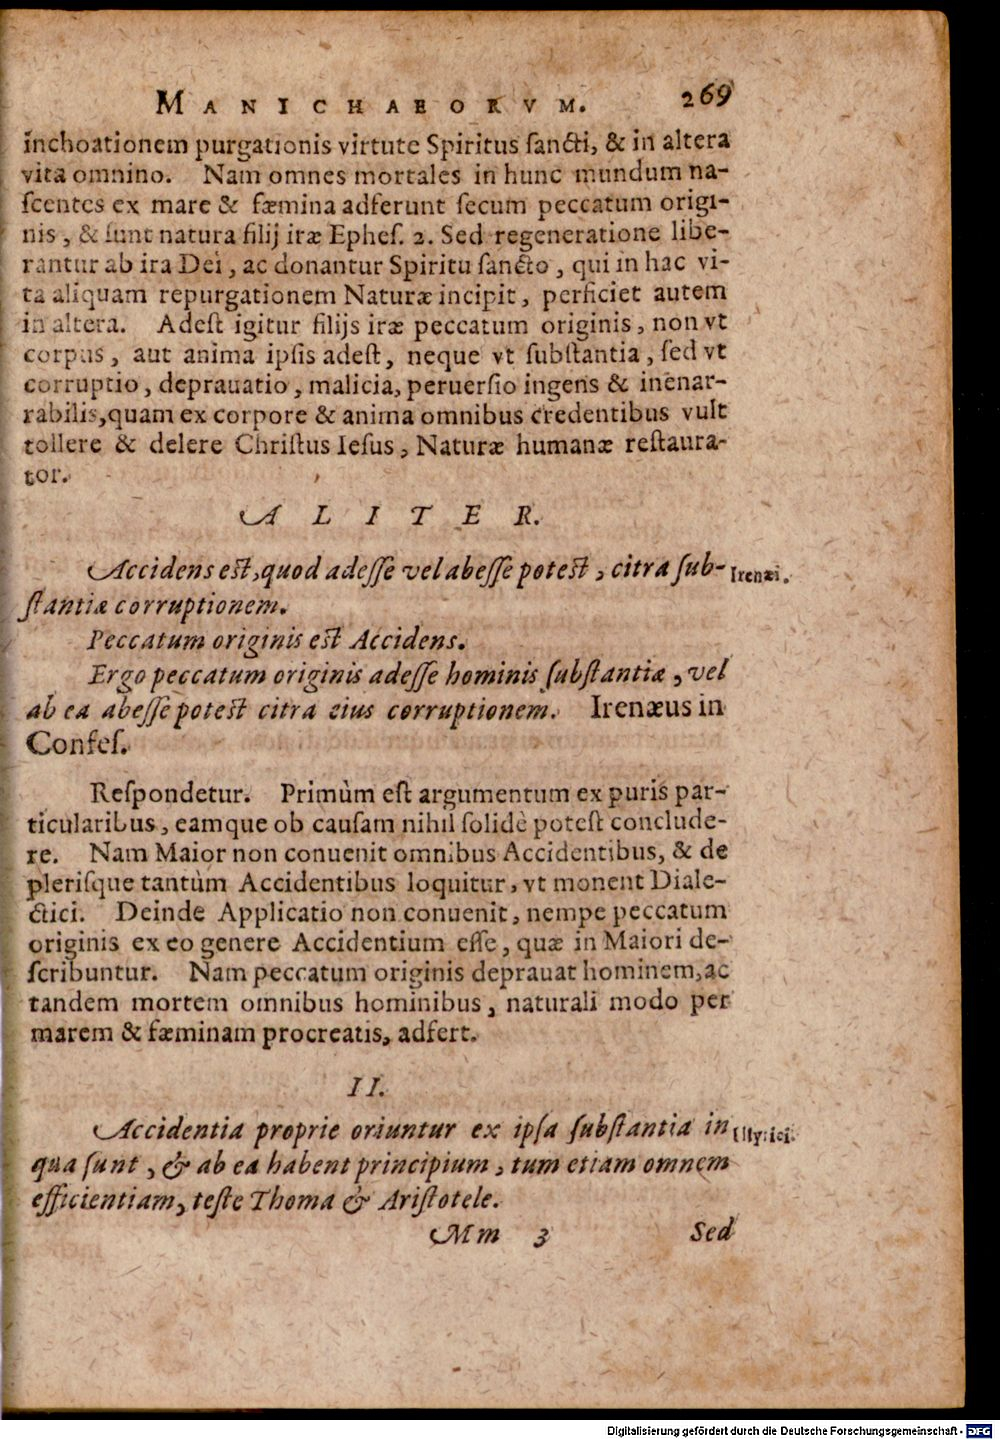 MANICHAEORVM. 269
inchoationem purgationis virtute Spiritus ſancti, & in altera
vita omnino. Nam omnes mortales in hunc mundum na-
ſcentes ex mare & fæmina adferunt ſecum peccatum origi-
nis, & ſunt natura filij iræ Epheſ. 2. Sed regeneratione libe-
rantur ab ira Dei, ac donantur Spiritu ſancto, qui in hac vi-
ta aliquam repurgationem Naturæ incipit, perficiet autem
in altera. Adeſt igitur filijs iræ peccatum originis, non vt
corpus, aut anima ipſis adeſt, neque vt ſubſtantia, ſed vt
corruptio, deprauatio, malicia, peruerſio ingens & inenar-
rabilis, quam ex corpore & anima omnibus credentibus vult
tollere & delere Chriſtus Ieſus, Naturæ humanæ reſtaura-
tor.
ALITER.
Accidens eſt, quod adeſſe vel abeſſe poteſt, citra ſub- Irenæi.
ſtantiæ corruptionem.
Peccatum originis eſt Accidens.
Ergo peccatum originis adeſſe hominis ſubſtantiæ, vel
ab ea abeſſe poteſt citra eius corruptionem. Irenæus in
Confeſ.
Reſpondetur. Primùm eſt argumentum ex puris par-
ticularibus, eamque ob cauſam nihil ſolidè poteſt conclude-
re. Nam Maior non conuenit omnibus Accidentibus, & de
pleriſque tantùm Accidentibus loquitur, vt monent Diale-
ctici. Deinde Applicatio non conuenit, nempe peccatum
originis ex eo genere Accidentium eſſe, quæ in Maiori de-
ſcribuntur. Nam peccatum originis deprauat hominem, ac
tandem mortem omnibus hominibus, naturali modo per
marem & fæminam procreatis, adfert.
II.
Accidentia proprie oriuntur ex ipſa ſubſtantia in Illyrici.
qua ſunt, & ab ea habent principium, tum etiam omnem
efficientiam, teſte Thoma & Ariſtotele.
Mm 3 Sed
Digitalisierung gefördert durch die Deutsche Forschungsgemeinschaft - DFG